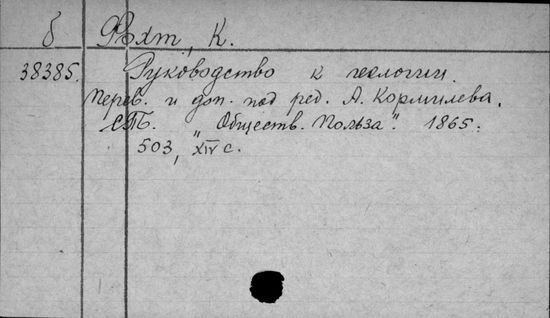 б Фохт, К.
38385. Руководство к геологии.
Перев. и доп. под ред. А. Кормилева.
СПБ. „Обществ. Польза". 1865.
503, XIV с.